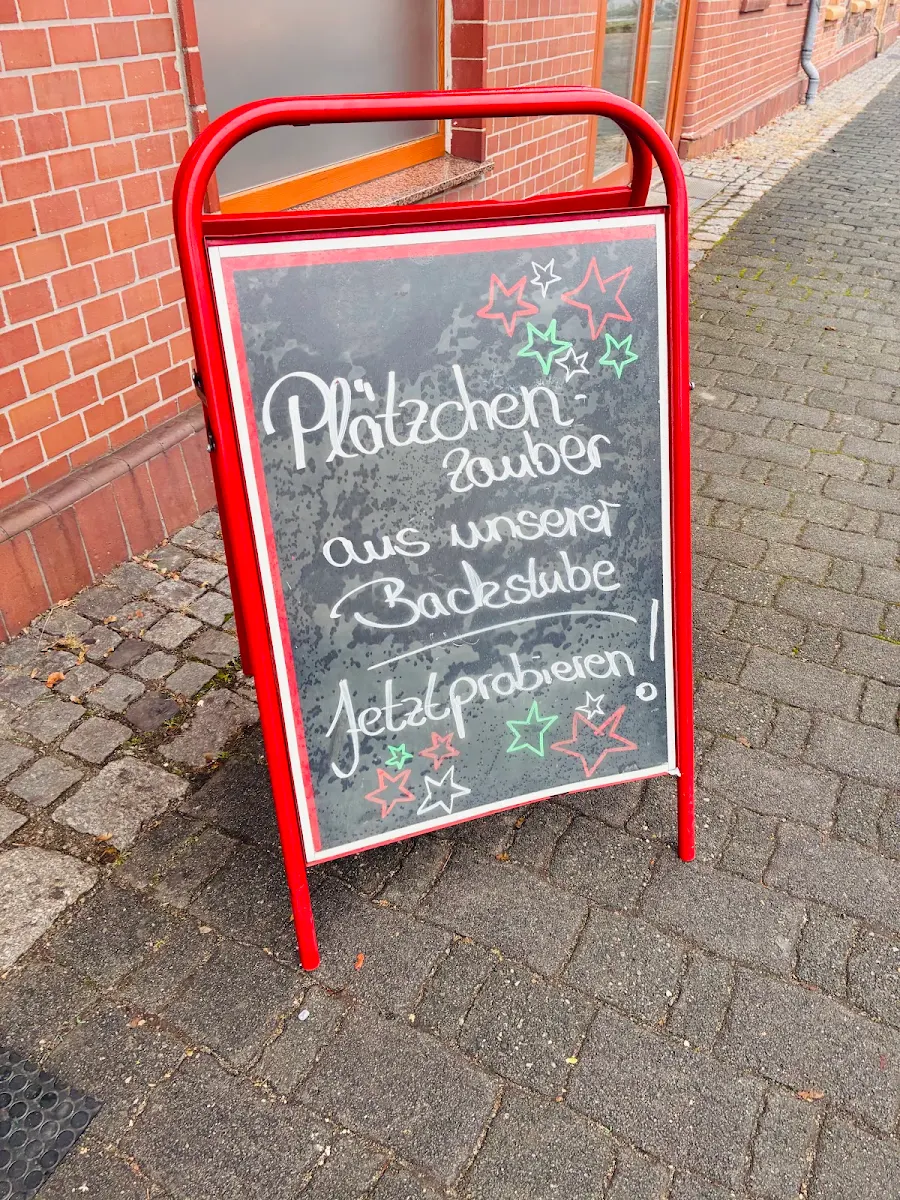 Plätzchen-
zauber
aus unserer
Backstube
Jetzt probieren!